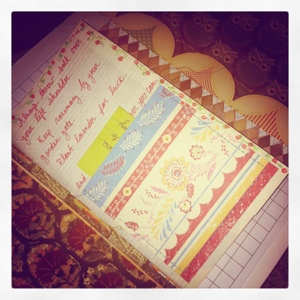 Always throw salt over
your left shoulder
Keep rosemary by your
garden gate
Plant lavender for luck
and